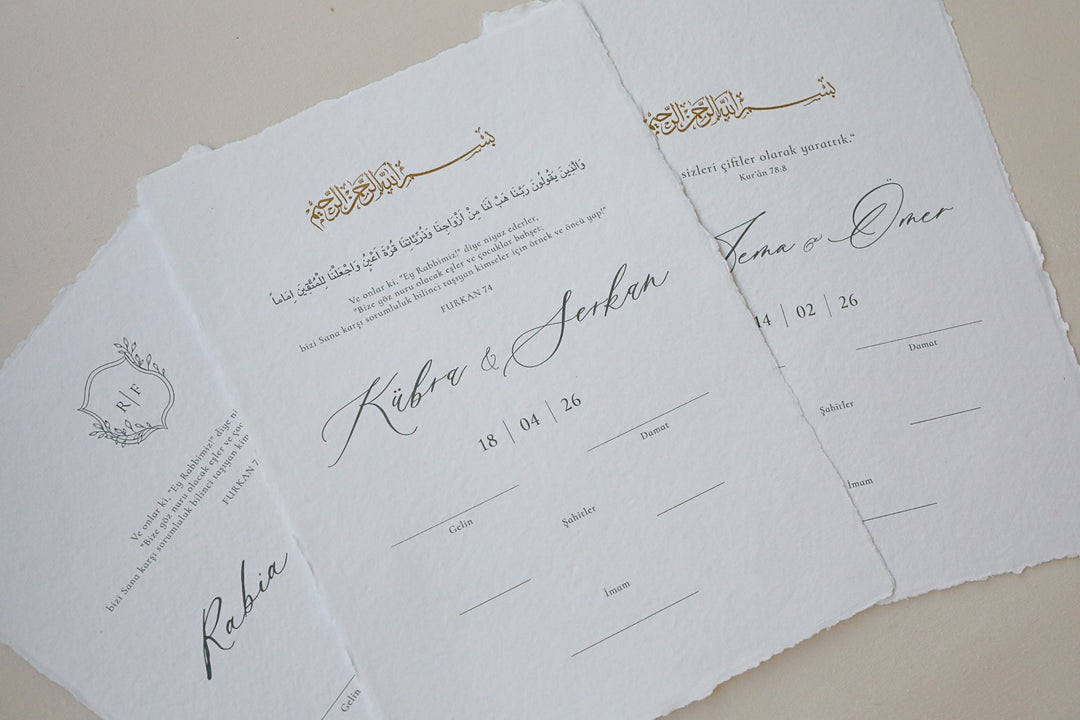 بسم الله الرحمن الرحيم
وَالَّذِينَ يَقُولُونَ رَبَّنَا هَبْ لَنَا مِنْ أَزْوَاجِنَا وَذُرِّيَّاتِنَا قُرَّةَ أَعْيُنٍ وَاجْعَلْنَا لِلْمُتَّقِينَ إِمَامًا
Ve onlar ki, "Ey Rabbimiz!" diye niyaz ederler,
"Bize göz nuru olacak eşler ve çocuklar bahşet;
bizi Sana karşı sorumluluk bilinci taşıyan kimseler için örnek ve öncü yap!"
FURKAN 74
Kübra & Serkan
18 | 04 | 26
Damat
Gelin
Şahitler
İmam
بسم الله الرحمن الرحيم
sizleri çiftler olarak yarattık."
Kur'ân 78:8
& Ömer
14 | 02 | 26
Damat
Şahitler
İmam
R | F
Ve onlar ki, "Ey Rabbimiz!" diye ni
"Bize göz nuru olacak eşler ve çoc
bizi Sana karşı sorumluluk bilinci taşıyan kim
FURKAN 7
Rabia
Gelin